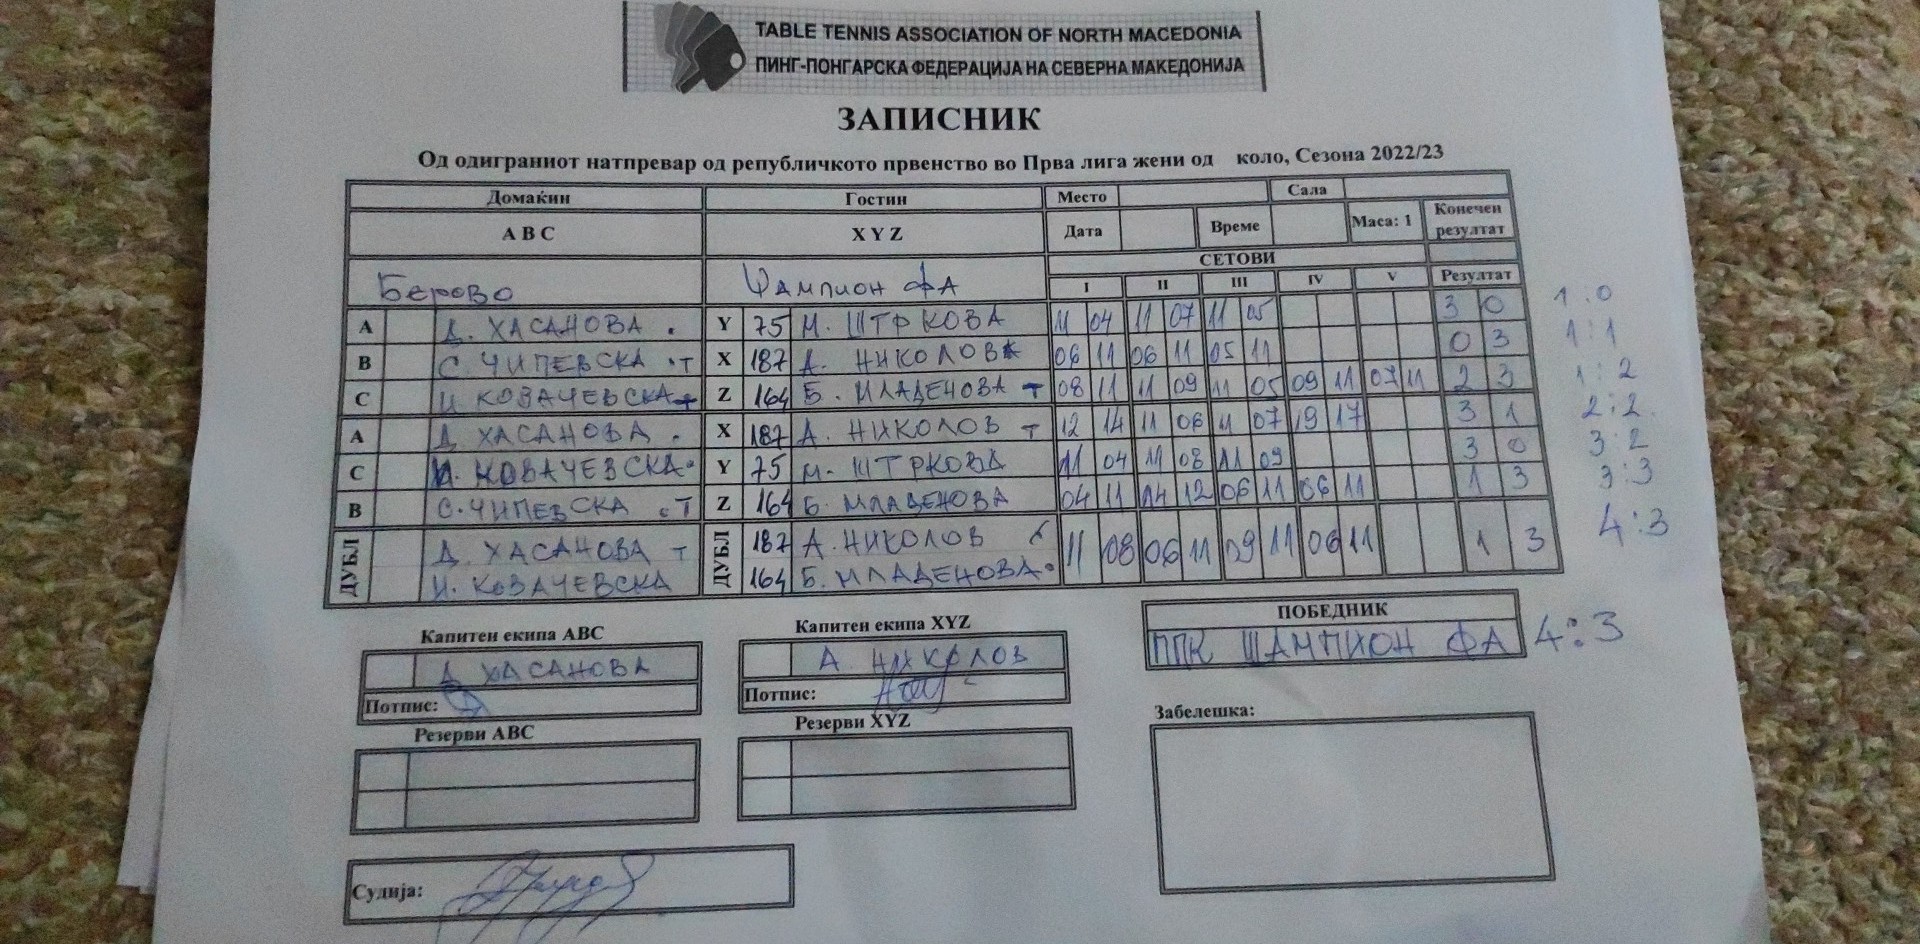 TABLE TENNIS ASSOCIATION OF NORTH MACEDONIA
ПИНГ-ПОНГАРСКА ФЕДЕРАЦИЈА НА СЕВЕРНА МАКЕДОНИЈА
ЗАПИСНИК
Од одиграниот натпревар од републичкото првенство во Прва лига жени од коло, Сезона 2022/23
Домаќин Гостин Место Сала
A B C X Y Z Дата Време Маса: 1 Конечен резултат
СЕТОВИ
Берово Шампион ФА I II III IV V Резултат
A Д. ХАСАНОВА . Y 75 М. ШТРКОВА 11 04 11 07 11 05 3 0 1:0
B С. ЧИПЕВСКА . Т X 187 А. НИКОЛОВ 06 11 06 11 05 11 0 3 1:1
C И. КОВАЧЕВСКА Т Z 164 Б. МЛАДЕНОВА Т 08 11 11 09 11 05 09 11 07 11 2 3 1:2
A Д. ХАСАНОВА . X 187 А. НИКОЛОВ Т 12 14 11 06 11 07 19 17 3 1 2:2.
C И. КОВАЧЕВСКА. Y 75 М. ШТРКОВА 11 04 11 08 11 09 3 0 3:2
B С. ЧИПЕВСКА . Т Z 164 Б. МЛАДЕНОВА 04 11 14 12 06 11 06 11 1 3 3:3
ДУБЛ Д. ХАСАНОВА Т ДУБЛ 187 А. НИКОЛОВ 11 08 06 11 09 11 06 11 1 3 4:3
И. КОВАЧЕВСКА 164 Б. МЛАДЕНОВА.
Капитен екипа ABC Капитен екипа XYZ ПОБЕДНИК
Д ХАСАНОВА А. НИКОЛОВ ППК ШАМПИОН ФА 4:3
Потпис: Потпис:
Резерви ABC Резерви XYZ Забелешка:
Судија: